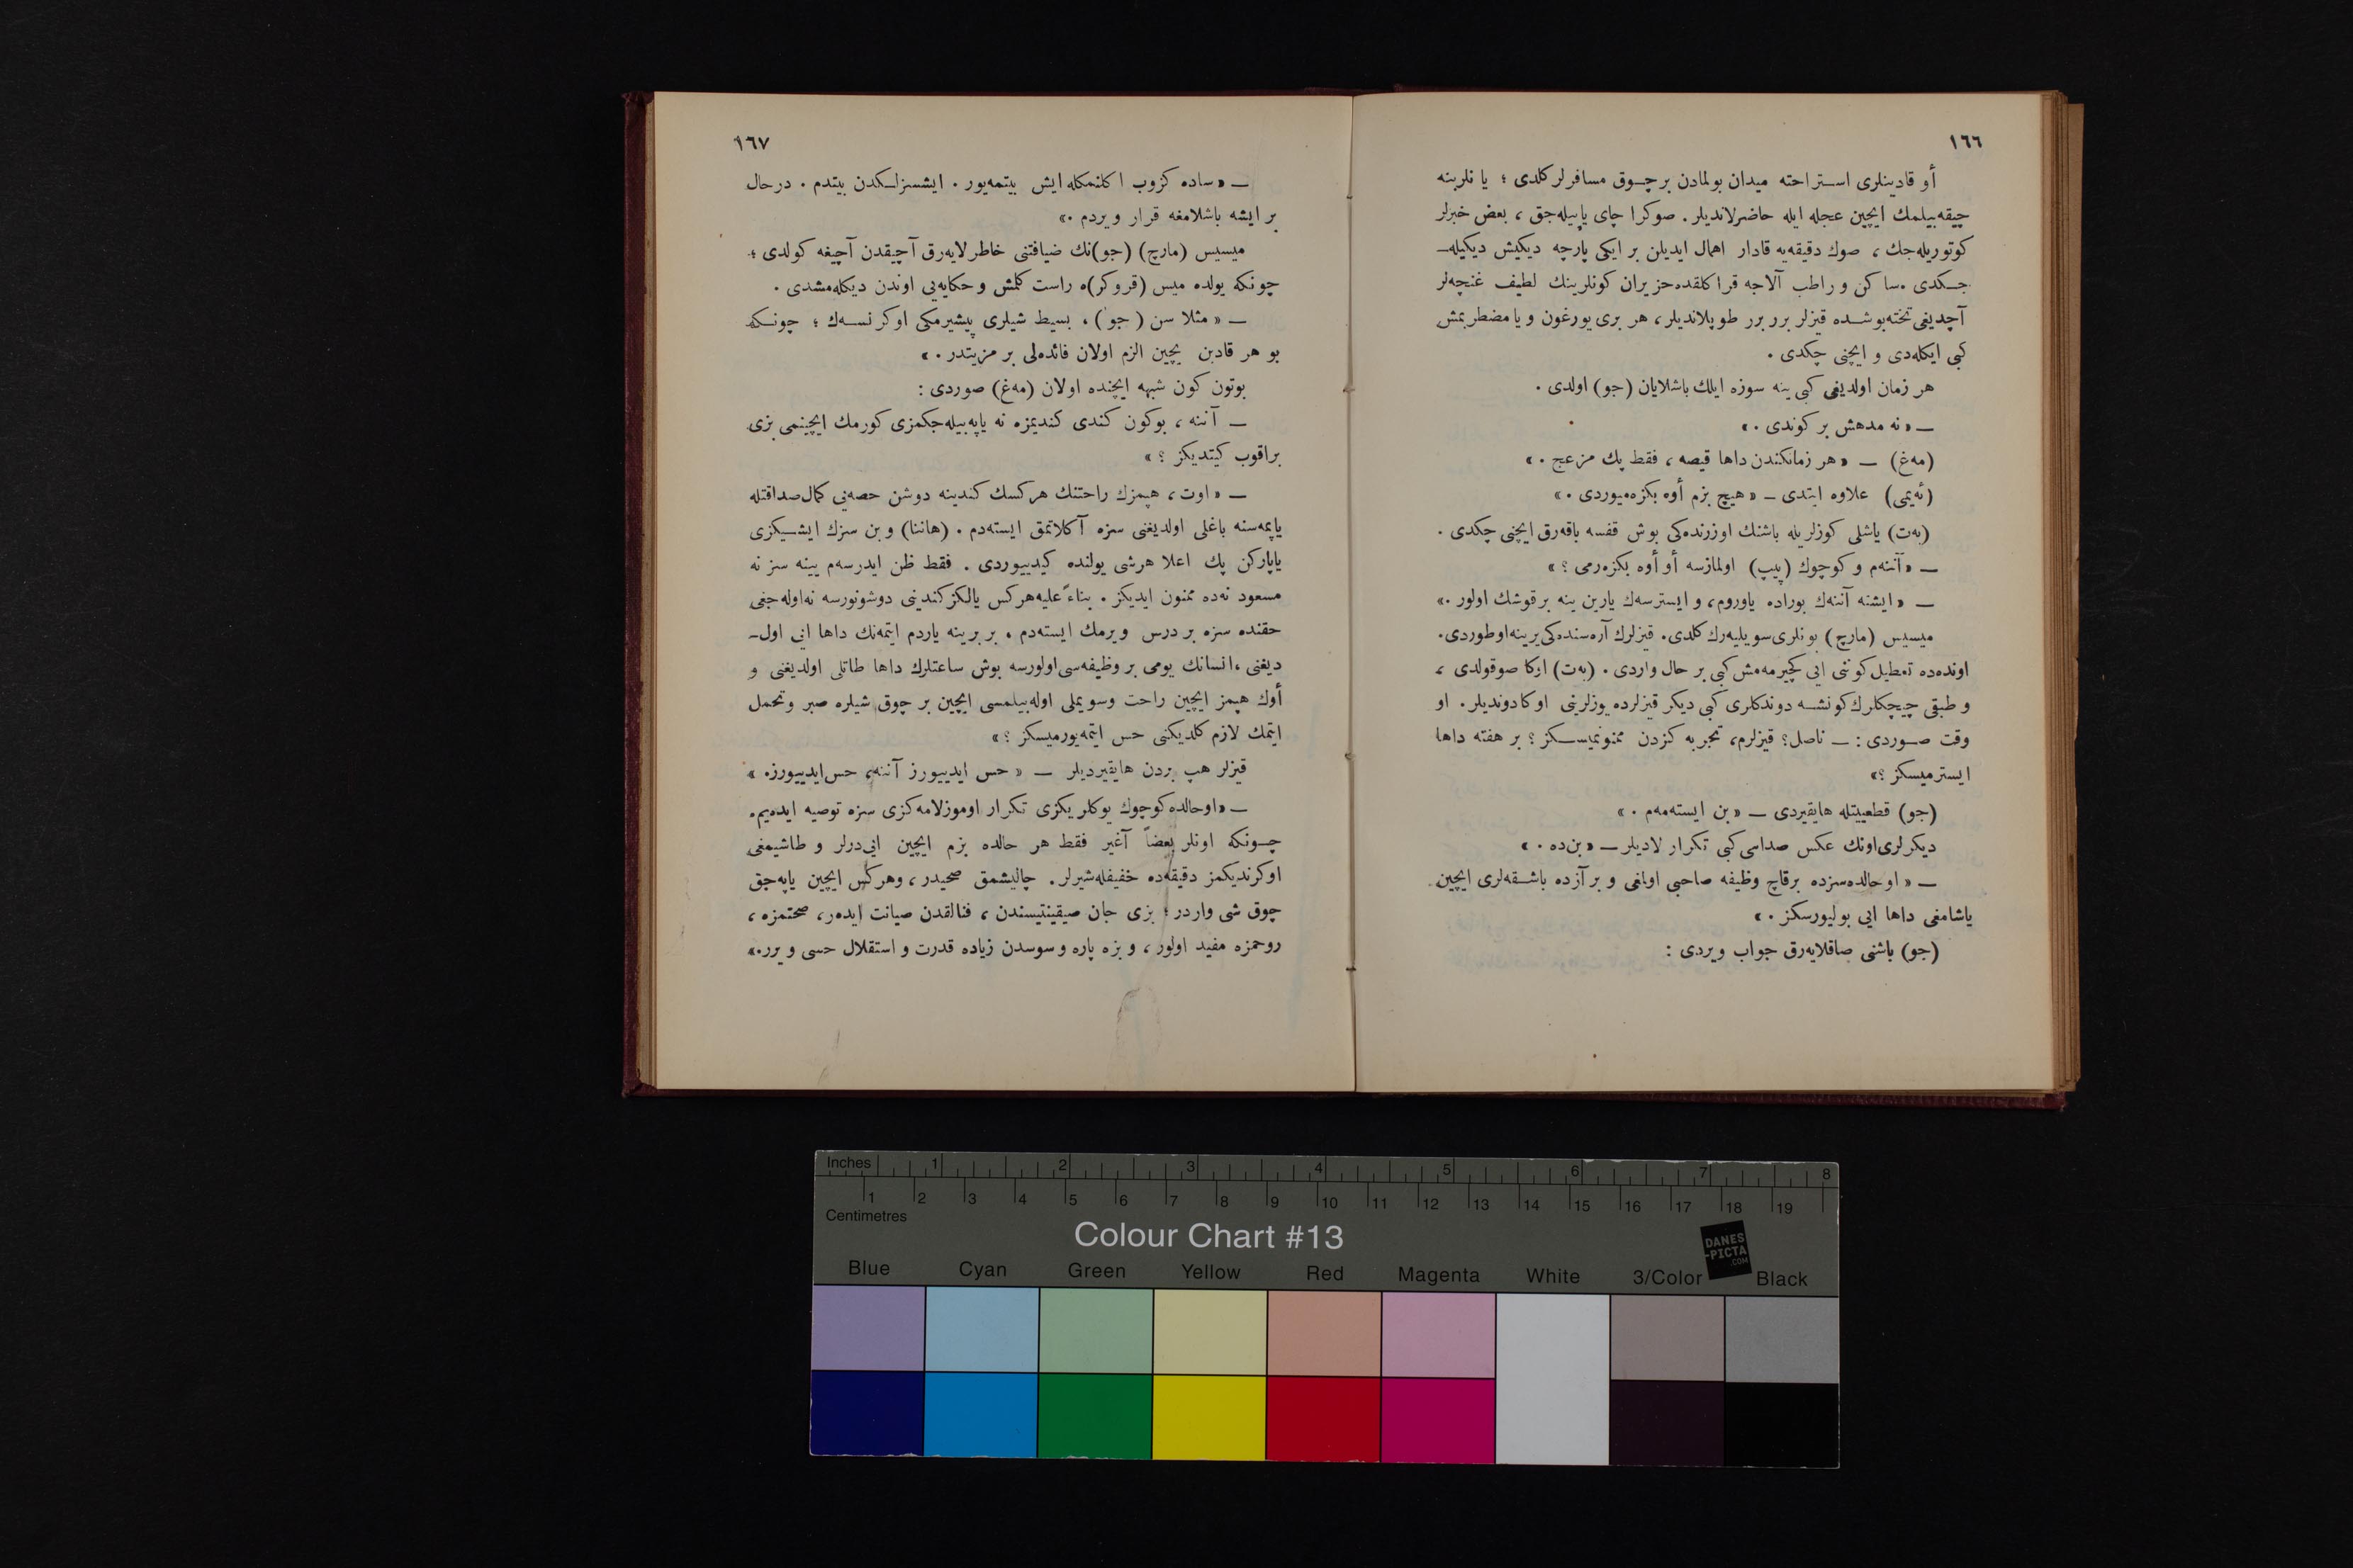 ١٦٦
أو قادینلری استراحته میدان بولمادن برچوق مسافرلر کلدی ؛ یا نلرینه
چیقه‌بیلمك ایچین عجله ایله حاضرلاندیلر . صوکرا چای یاپیله‌جق ، بعض خبرلر
کوتوریله‌جك ، صوك دقیقه‌یه قادار اهمال ایدیلن بر ایکی پارچه دیکیش دیکیله‌ـ
جکدی . ساکن و راطب آلاجه قراکلقده حزیران کونلرینك لطیف غنچه‌لر
آچدیغی تخته‌بوشده قیزلر برر برر طوپلاندیلر ، هر بری یورغون و یا مضطربمش
کبی ایکله‌دی و ایچنی چکدی .
هر زمان اولدیغی کبی ینه سوزه ایلك باشلایان (جو) اولدی .
— « نه مدهش بر کوندی . »
(مه‌غ) — « هر زمانکندن داها قیصه ، فقط پك مزعج . »
(ئه‌یمی) علاوه ایتدی — « هیچ بزم أوه بکزه‌میوردی . »
(به‌ت) یاشلی کوزلریله باشنك اوزرنده‌کی بوش قفسه باقه‌رق ایچنی چکدی .
— « آننه‌م و کوچوك (پیپ) اولمازسه أو أوه بکزه‌رمی ؟ »
— « ایشته آننه‌ك بوراده یاوروم ، و ایسترسه‌ك یارین ینه بر قوشك اولور . »
میسیس (مارچ) بونلری سویلیه‌رك کلدی . قیزلرك آره‌سنده‌کی یرینه اوطوردی .
اونده‌ده تعطیل کوننی ایی کچیرمه‌مش کبی بر حال واردی . (به‌ت) اوکا صوقولدی ،
و طبقی چیچکلرك کونشه دوندکلری کبی دیکر قیزلرده یوزلرینی اوکا دوندیلر . او
وقت صوردی : — ناصل؟ قیزلرم ، تجربه کزدن ممنونمیسکز ؟ بر هفته داها
ایسترمیسکز ؟ »
(جو) قطعیتله هایقیردی — « بن ایسته‌مه‌م . »
دیکرلری اونك عکس صداسی کبی تکرار لادیلر — « بن‌ده . »
— « او حالده سزده برقاچ وظیفه صاحبی اولمغی و بر آزده باشقه‌لری ایچین
یاشامغی داها ایی بولیورسکز . »
(جو) باشنی صاقلایه‌رق جواب ویردی :
١٦٧
— « ساده کزوب اکلنمکله ایش بیتمه‌یور . ایشسزلکدن بیتدم . درحال
بر ایشه باشلامغه قرار ویردم . »
میسیس (مارچ) (جو)نك ضیافتنی خاطرلایه‌رق آچیقدن آچیغه کولدی ؛
چونکه یولده میس (قروکر)ه راست کلمش و حکایه‌یی اوندن دیکله‌مشدی .
— « مثلا سن (جو) ، بسیط شیلری پیشیرمکی اوکرنسه‌ك ؛ چونکه
بو هر قادین یچین الزم اولان فائده‌لی بر مزیتدر . »
بوتون کون شبهه ایچنده اولان (مه‌غ) صوردی :
— آننه ، بوکون کندی کندیمزه نه یاپه‌بیله‌جکمزی کورمك ایچینمی بزی
براقوب کیتدیکز ؟ »
— « اوت ، هپمزك راحتنك هرکسك کندینه دوشن حصه‌یی کمال صداقتله
یاپمه‌سنه باغلی اولدیغنی سزه آکلاتمق ایسته‌دم . (هاننا) و بن سزك ایشیکزی
یاپارکن پك اعلا هرشی یولنده کیدییوردی . فقط ظن ایدرسه‌م یینه سز نه
مسعود نه‌ده ممنون ایدیکز . بناءً علیه هرکس یالکز کندینی دوشونورسه نه‌اوله‌جغی
حقنده سزه بر درس ویرمك ایسته‌دم . بر برینه یاردم ایتمه‌نك داها ایی اول‌ـ
دیغنی ، انسانك یومی بر وظیفه‌سی اولورسه بوش ساعتلرك داها طاتلی اولدیغنی و
أوك هپمز ایچین راحت وسویملی اوله‌بیلمسی ایچین بر چوق شیلره صبر وتحمل
ایتمك لازم کلدیکنی حس ایتمه‌یورمیسکز ؟ »
قیزلر هپ بردن هایقیردیلر — « حس ایدییورز آننه ، حس ایدییورز . »
— « اوحالده کوچوك یوکلریکزی تکرار اوموزلامه‌کزی سزه توصیه ایده‌یم .
چونکه اونلر بعضاً آغیر فقط هر حالده بزم ایچین ایی‌درلر و طاشیمغی
اوکرندیکمز دقیقه‌ده خفیفله‌شیرلر . چالیشمق صحیدر ، وهرکس ایچین یاپه‌جق
چوق شی واردر ؛ بزی جان صیقینتیسندن ، فنالقدن صیانت ایده‌ر ، صحتمزه ،
روحمزه مفید اولور ، و بزه پاره و سوسدن زیاده قدرت و استقلال حسی ویرر . »
Inches 1 2 3 4 5 6 7 8
1 2 3 4 5 6 7 8 9 10 11 12 13 14 15 16 17 18 19
Centimetres
Colour Chart #13
DANES
-PICTA
.COM
Blue Cyan Green Yellow Red Magenta White 3/Color Black